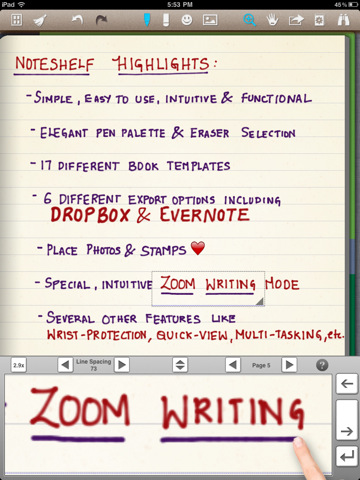 iPad
5:53 PM
95%
NOTESHELF HIGHLIGHTS:
- SIMPLE, EASY TO USE, INTUITIVE & FUNCTIONAL
- ELEGANT PEN PALETTE & ERASER SELECTION
- 17 DIFFERENT BOOK TEMPLATES
- 6 DIFFERENT EXPORT OPTIONS INCLUDING
DROPBOX & EVERNOTE
- PLACE PHOTOS & STAMPS ❤
- SPECIAL, INTUITIVE ZOOM WRITING MODE
- SEVERAL OTHER FEATURES LIKE
WRIST-PROTECTION, QUICK-VIEW, MULTI-TASKING, etc.
2.9x
Line Spacing
73
Page 5
?
ZOOM WRITING